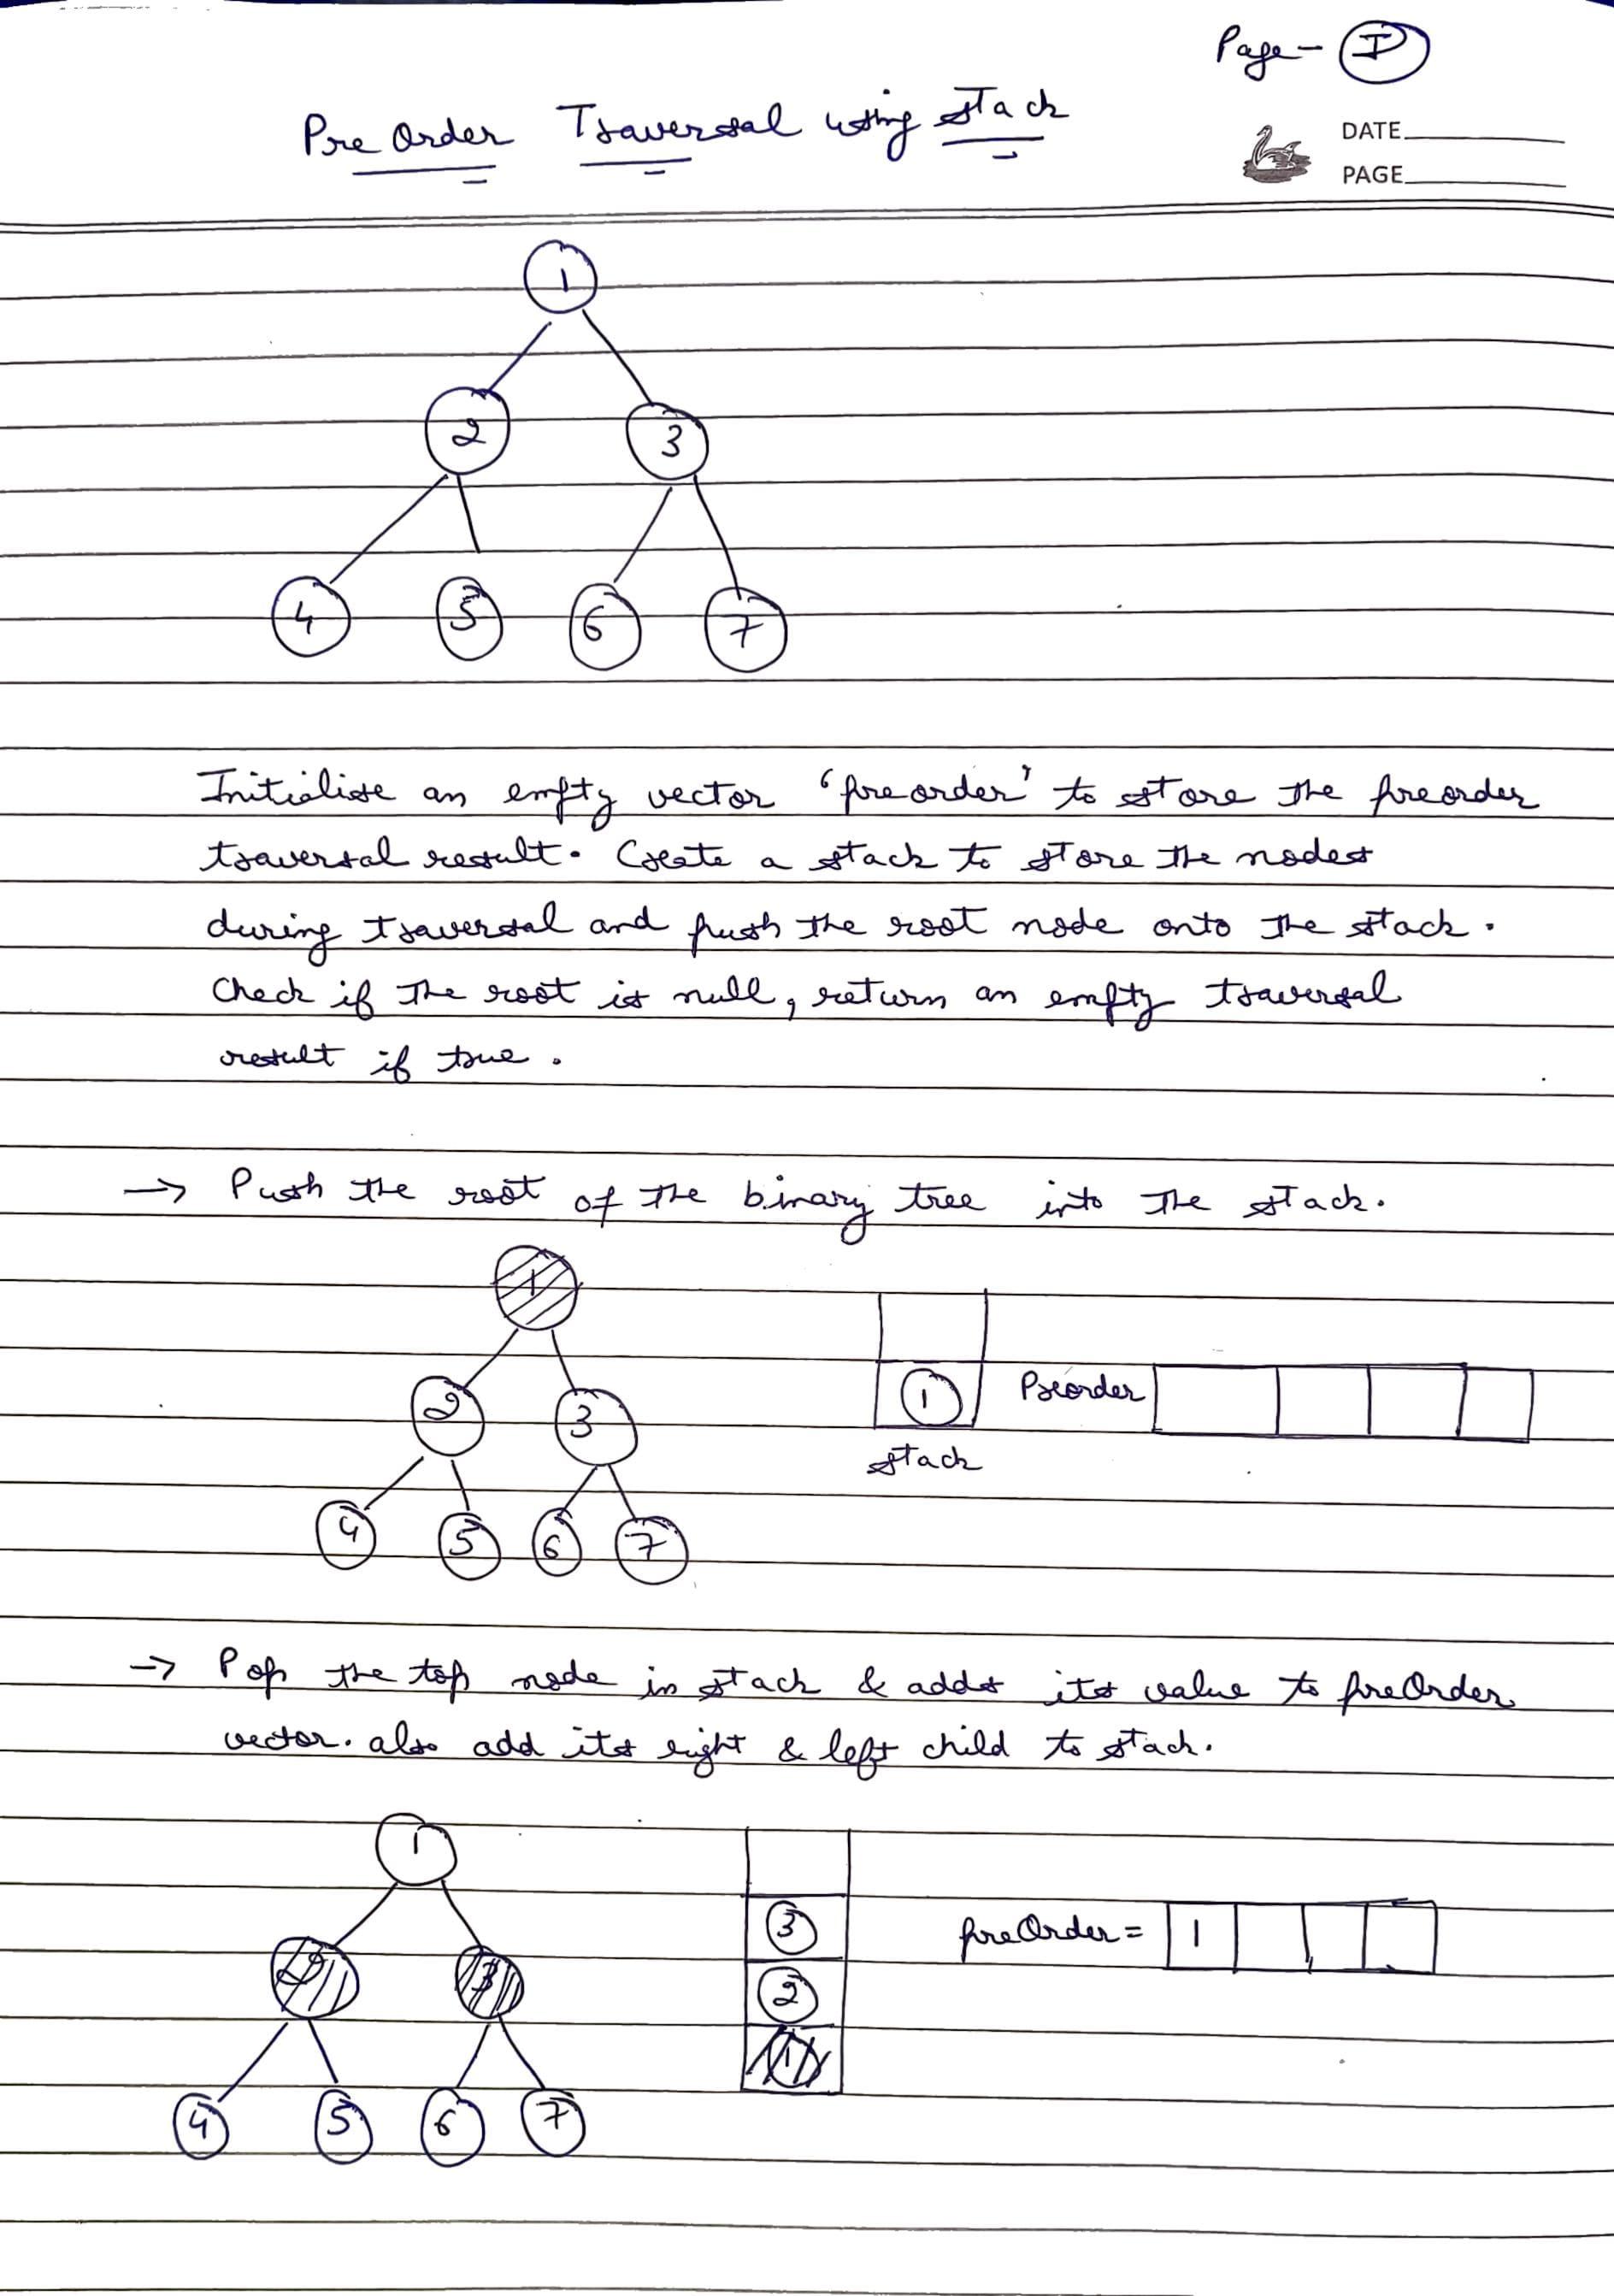 Page - I
Pre Order Traversal using stack
DATE
PAGE
1
2 3
4 5 6 7
Initialise an empty vector 'preorder' to store the preorder
traversal result. Create a stack to store the nodes
during traversal and push the root node onto the stack.
Check if the root is null, return an empty traversal
result if true.
→ Push the root of the binary tree into the stack.
1
2 3 1 Preorder
stack
4 5 6 7
→ Pop the top node in stack & adds its value to preOrder
vector. also add its right & left child to stack.
1
3 preOrder = 1
2 3 2
1
4 5 6 7